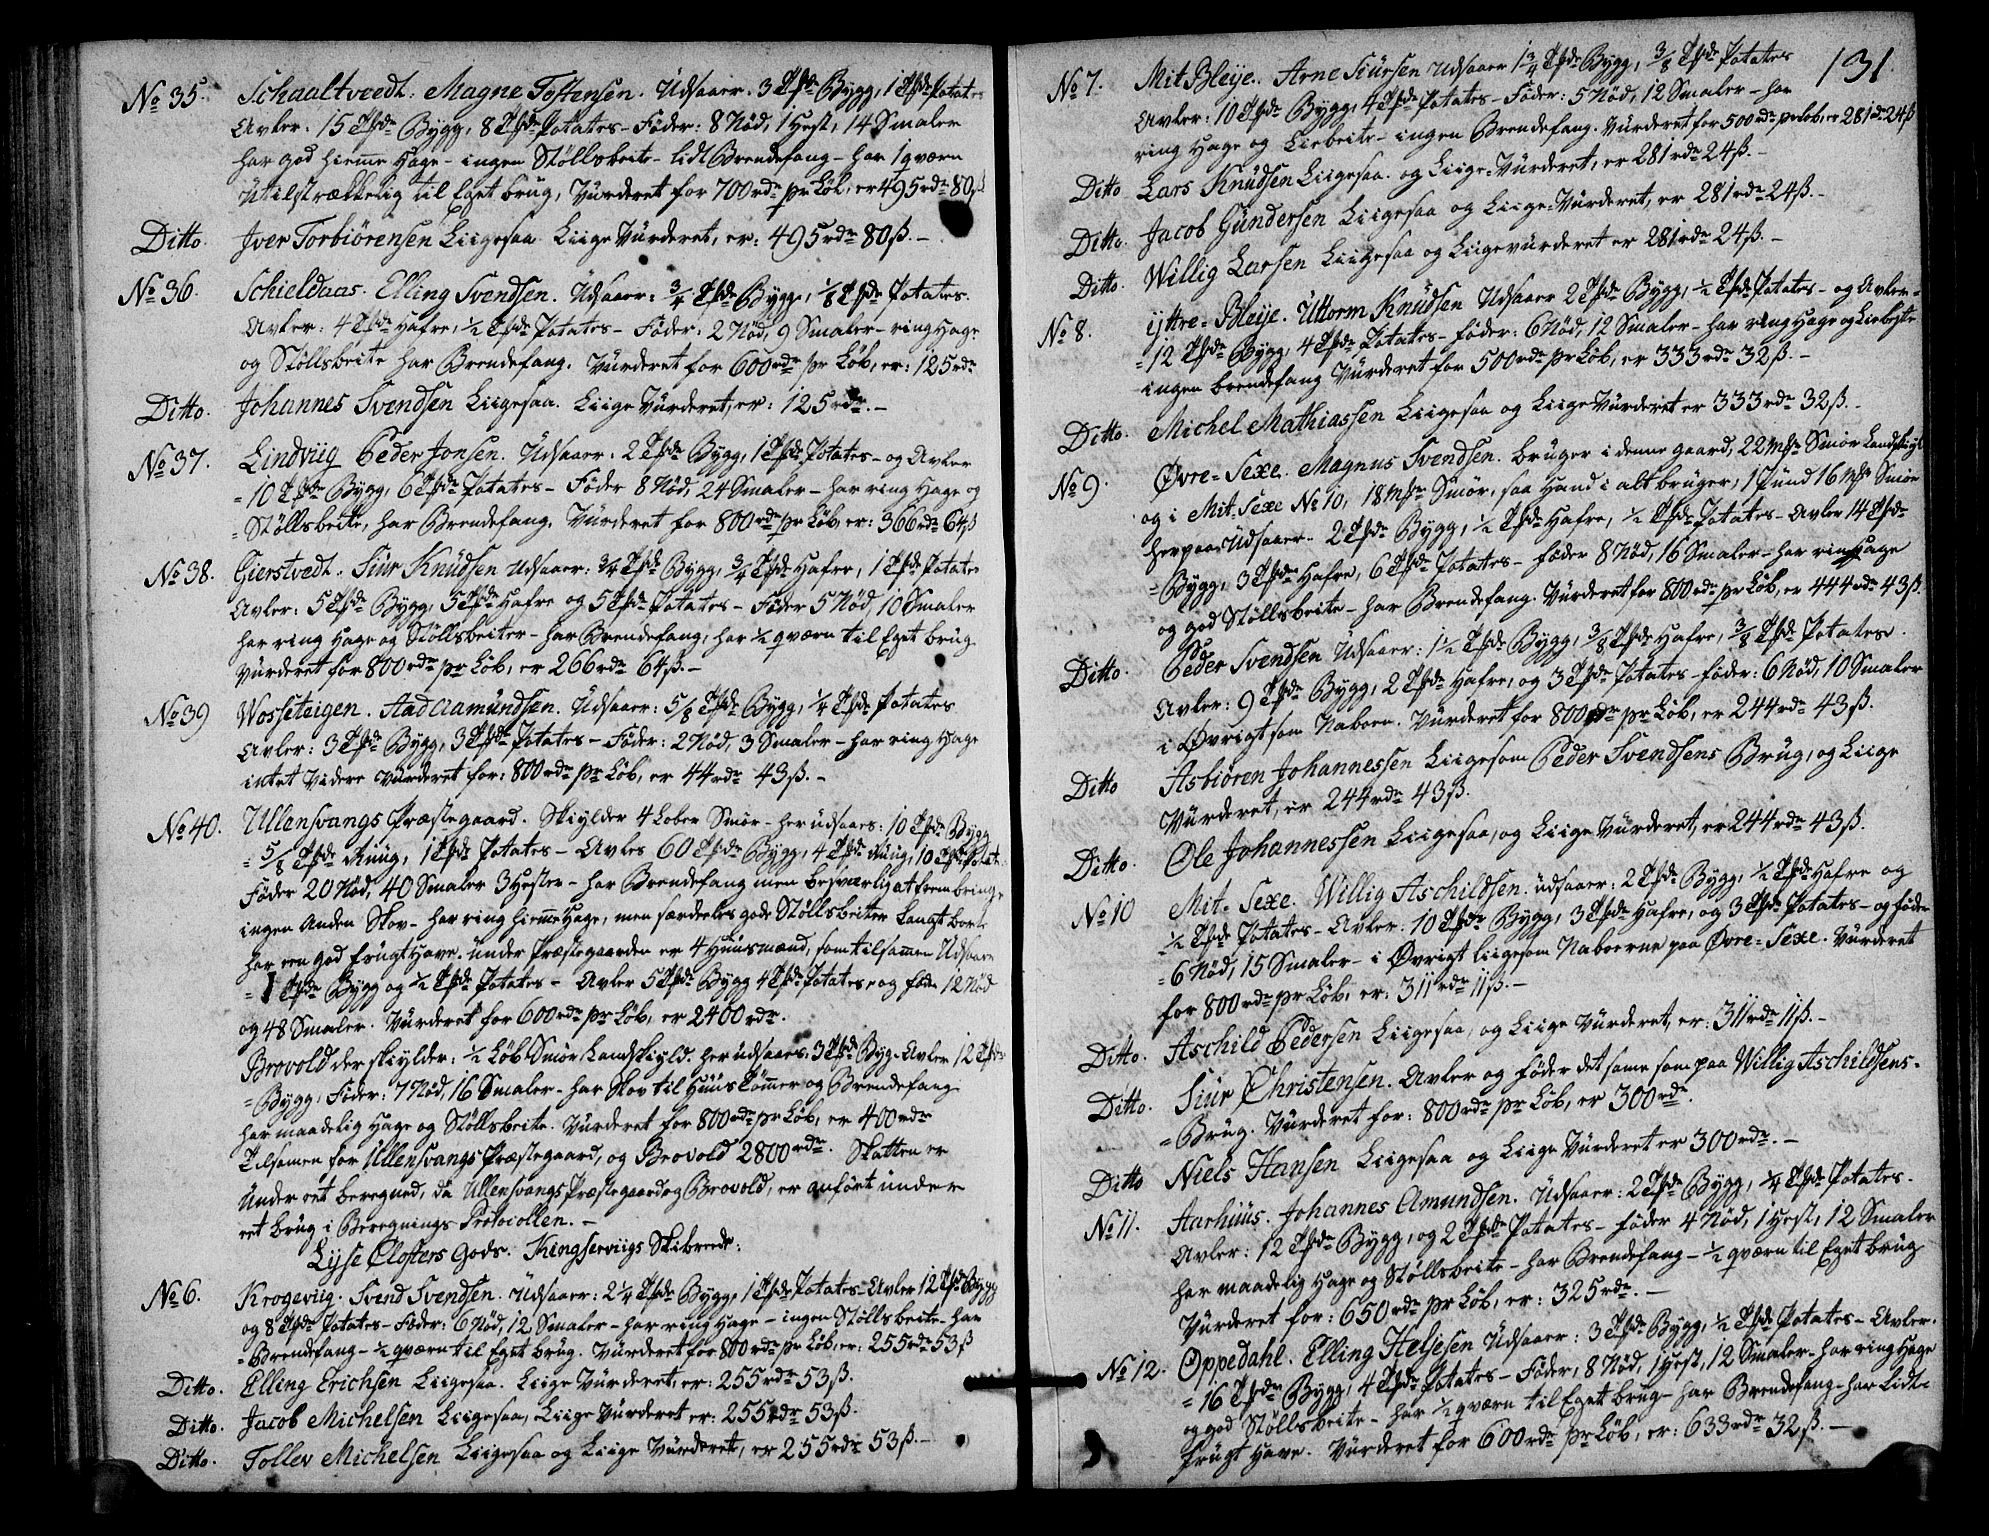 No 35. Schaaltveedt. Magne Tostensen. Udsaaer. 3 Tpde Bygg, 1 Tpde Potates
Avler: 15 Tpde Bygg, 8 Tpde Potates - Føder: 8 Nød, 1 Hest, 14 Smaler
har god hieme Hage - ingen Støllsbeite - lidt Brendefang - har 1 qværn
Utilstrækkelig til Eget brug, Vurderet for 700 rdr pr Løb, er 495 rdr 80 ß
Ditto. Iver Torbiørensen Liigesaa. Liige Vurderet, er: 495 rdr 80 ß. -
No 36. Schieldaas. Elling Svendsen. Udsaaer: 3/4 Tpde Bygg, 1/8 Tpde Potates.
Avler: 4 Tpde Hafre, 1/2 Tpde Potates - Føder: 2 Nød, 9 Smaler - ring Hage
og Støllsbeite har Brendefang. Vurderet for 600 rdr pr Løb, er: 125 rdr
Ditto. Johannes Svendsen Liigesaa. Liige Vurderet, er: 125 rdr. -
No 37. Lindviig Peder Jonsen. Udsaaer: 2 Tpde Bygg, 1 Tpde Potates - og Avler
= 10 Tpde Bygg, 6 Tpde Potates - Føder 8 Nød, 24 Smaler - har ring Hage og
= Støllsbeite, har Brendefang. Vurderet for 800 rdr pr Løb, er: 366 rdr 64 ß
No 38. Gierstvedt. Siur Knudsen Udsaaer: 3/4 Tpde Bygg, 3/4 Tpde Hafre, 1 Tpde Potates
Avler: 5 Tpde Bygg, 5 Tpde Hafre og 5 Tpde Potates - Føder 5 Nød, 10 Smaler
har ring Hage og Støllsbeiter - har Brendefang, har 1/2 qværn til Eget brug
Vurderet for 800 rdr pr Løb, er 266 rdr 64 ß. -
No 39 Wosseteigen. Aad Aamundsen. Udsaaer: 5/8 Tpde Bygg, 1/4 Tpde Potates
Avler: 3 Tpde Bygg, 3 Tpde Potates - Føder: 2 Nød, 3 Smaler - har ring Hage
intet Videre Vurderet for: 800 rdr pr Løb, er 44 rdr 43 ß. -
No 40. Ullensvangs Præstegaard. Skylder 4 Løber Smør - her udsaaes: 10 Tpde Bygg
= 5/8 Tpde Ruug, 1 Tpde Potates - Avles 60 Tpde Bygg, 4 Tpde Ruug, 10 Tpde Potat
Føder 20 Nød, 40 Smaler 3 Hester - har Brendefang men besværlig at frembringe
ingen Anden Skov - har ring hieme Hage, men særdeeles gode Støllsbeiter Langt borte
har een god frugt Have. under Præstegaarden er 4 Huusmænd, som tilsammen Udsaaer
= 1 Tpde Bygg og 1/2 Tpde Potates - Avler 5 Tpde Bygg 4 Tpde Potates, og føder 12 Nød
og 48 Smaler. Vurderet for 600 rdr pr Løb, er 2400 rdr.
Brovold der skylder: 1/2 Løb Smør Landskyld. her udsaaes: 3 Tpde Byg - Avler 12 Tpde
= Bygg, Føder: 7 Nød, 16 Smaler - har Skov til Huus Tømmer og Brendefang
har maadelig Hage og Støllsbeite. Vurderet for 800 rdr pr Løb, er 400 rdr
Tilsamen for Ullensvangs Præstegaard, og Brovold 2800 rdr. Skatten er
under eet beregned, da Ullensvangs Præstegaard og Brovold, er anført under
eet brug i Beregnings Protocollen. -
Lyse Closters Gods. Kingserviigs Skibrede:
No 6. Krogeviig. Svend Svendsen. Udsaaer: 2 1/4 Tpde Bygg, 1 Tpde Potates - Avler 12 Tpde Bygg
og 8 Tpde Potates - Føder: 6 Nød, 12 Smaler - har ring Hage - ingen Støllsbeite - har
= Brendefang - 1/2 qværn til Eget brug. Vurderet for 800 rdr pr Løb, er: 255 rdr 53 ß
Ditto. Elling Erichsen Liigesaa. Liige Vurderet, er: 255 rdr 53 ß.
Ditto. Jacob Michelsen Liigesaa, Liige Vurderet er: 255 rdr 53 ß.
Ditto. Tollev Michelsen Liigesaa og Liige Vurderet, er 255 rdr 53 ß. -
131.
No 7. Mit Bleije. Arne Siursen Udsaaer 1 3/4 Tpde Bygg, 3/8 Tpde Potates
Avler: 10 Tpde Bygg, 4 Tpde Potates - Føder: 5 Nød, 12 Smaler - har
ring Hage og Liebeite - ingen Brendefang. Vurderet for 500 rdr pr Løb, er 281 rdr 24 ß
Ditto Lars Knudsen Liigesaa. og Liige-Vurderet, er 281 rdr 24 ß. -
Ditto. Jacob Gundersen Liigesaa og Liige-Vurderet, er 281 rdr 24 ß. -
Ditto. Willig Larsen Liigesaa og Liigevurderet er 281 rdr 24 ß. -
No 8. ijttre-Bleije. Uttorm Knudsen Udsaaer 2 Tpde Bygg, 1/2 Tpde Potates - og Avler =
= 12 Tpde Bygg, 4 Tpde Potates - føder: 6 Nød, 12 Smaler - har ring Hage og Liebeite
ingen brendefang Vurderet for 500 rdr pr Løb, er 333 rdr 32 ß. -
Ditto. Michel Mathiassen Liigesaa og Liige Vurderet er 333 rdr 32 ß. -
No 9. Øvre-Sexe. Magnus Svendsen. bruger i denne gaard, 22 mkr Smør Landskyld
og i Mit-Sexe No 10, 18 mkr Smør, saa Hand i alt bruger, 1 Pund 16 mkr Smør
herpaa Udsaaer. 2 Tpde Bygg, 1/2 Tpde Hafre, 1/2 Tpde Potates - Avler 14 Tpde
= Bygg, 3 Tpde Hafre, 6 Tpde Potates - føder 8 Nød, 16 Smaler - har ring Hage
og god Støllsbeite - har Brendefang. Vurderet for 800 rdr pr Løb, er 444 rdr 43 ß.
Ditto. Peder Svendsen Udsaaer: 1 1/2 Tpde Bygg, 3/8 Tpde Hafre, 3/8 Tpde Potates.
Avler: 9 Tpde Bygg, 2 Tpde Hafre, og 3 Tpde Potates - føder: 6 Nød, 10 Smaler
i Øvrigt som Naboen. Vurderet for 800 rdr pr Løb, er 244 rdr 43 ß.
Ditto Asbiøren Johannessen Liigesom Peder Svendsens Brug, og Liige
Vurderet, er 244 rdr 43 ß.
Ditto. Ole Johannessen Liigesaa, og Liige Vurderet, er 244 rdr 43 ß.
No 10 Mit-Sexe. Willig Aschildsen. udsaaer: 2 Tpde Bygg, 1/2 Tpde Hafre og
1/2 Tpde Potates - Avler: 10 Tpde Bygg, 3 Tpde Hafre, og 3 Tpde Potates - og føder
= 6 Nød, 15 Smaler - i Øvrigt liigesom Naboerne paa Øvre-Sexe. Vurderet
for 800 rdr pr Løb, er: 311 rdr 11 ß. -
Ditto. Aschild Pedersen Liigesaa, og Liige Vurderet, er: 311 rdr 11 ß. -
Ditto. Siur Christensen. Avler og føder det same som paa Willig Aschildsens -
= Brug. Vurderet for: 800 rdr pr Løb, er 300 rdr.
Ditto Niels Hansen Liigesaa og Liige Vurderet er 300 rdr. -
No 11. Aarhuus. Johannes Amundsen. Udsaaer: 2 Tpde Bygg, 1/4 Tpde Potates.
Avler: 12 Tpde Bygg, og 2 Tpde Potates - føder 4 Nød, 1 Hest, 12 Smaler
har maadelig Hage og Støllsbeite - har Brendefang - 1/2 qværn til Eget brug
Vurderet for: 650 rdr pr Løb, er: 325 rdr. -
No 12. Oppedahl. Elling Heljesen Udsaaer: 3 Tpde Bygg, 1/2 Tpde Potates - Avler.
= 16 Tpde Bygg, 4 Tpde Potates - Føder, 8 Nød, 1 Hest, 12 Smaler - har ring Hage
og god Støllsbeite - har 1/2 qværn til Eget brug - har Brendefang - har Lidt -
frugt Have. Vurderet for 600 rdr pr Løb, er: 633 rdr 32 ß. -